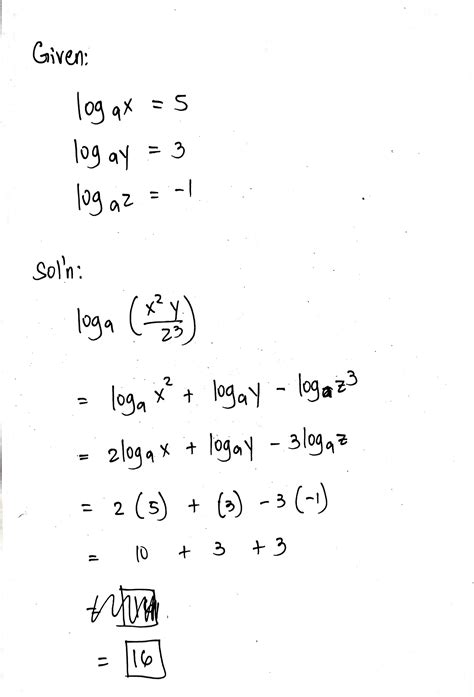 Given:
logₐx = 5
logₐy = 3
logₐz = -1
Sol'n:
logₐ (x²y/z³)
= logₐx² + logₐy - logₐz³
= 2logₐx + logₐy - 3logₐz
= 2(5) + (3) - 3(-1)
= 10 + 3 + 3
= 16